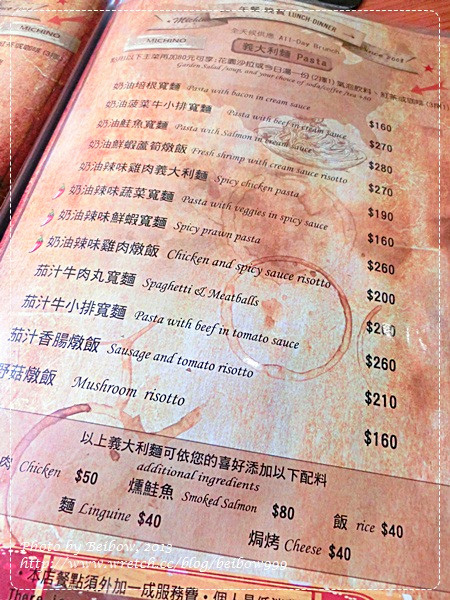 午餐 晚餐 LUNCH DINNER
MICHINO
MICHINO
全天候供應 All-Day Brunch
義大利麵 Pasta
奶油培根寬麵 Pasta with bacon in cream sauce $160
奶油菠菜牛小排寬麵 Pasta with beef in cream sauce $270
奶油鮭魚寬麵 Pasta with Salmon in cream sauce $280
奶油鮮蝦蘆筍燉飯 Fresh shrimp with cream sauce risotto $270
奶油辣味雞肉義大利麵 Spicy chicken pasta $190
奶油辣味蔬菜寬麵 Pasta with veggies in spicy sauce $160
奶油辣味鮮蝦寬麵 Spicy prawn pasta $260
奶油辣味雞肉燉飯 Chicken and spicy sauce risotto $200
茄汁牛肉丸寬麵 Spaghetti & Meatballs
茄汁牛小排寬麵 Pasta with beef in tomato sauce $260
茄汁香腸燉飯 Sausage and tomato risotto $210
野菇燉飯 Mushroom risotto $160
以上義大利麵可依您的喜好添加以下配料
additional ingredients
肉 Chicken $50 燻鮭魚 Smoked Salmon $80 飯 rice $40
麵 Linguine $40 焗烤 Cheese $40
Photo by Beibow, 2013
http://www.wretch.cc/blog/beibow999
*本店餐點須外加一成服務費,個人最低消
There